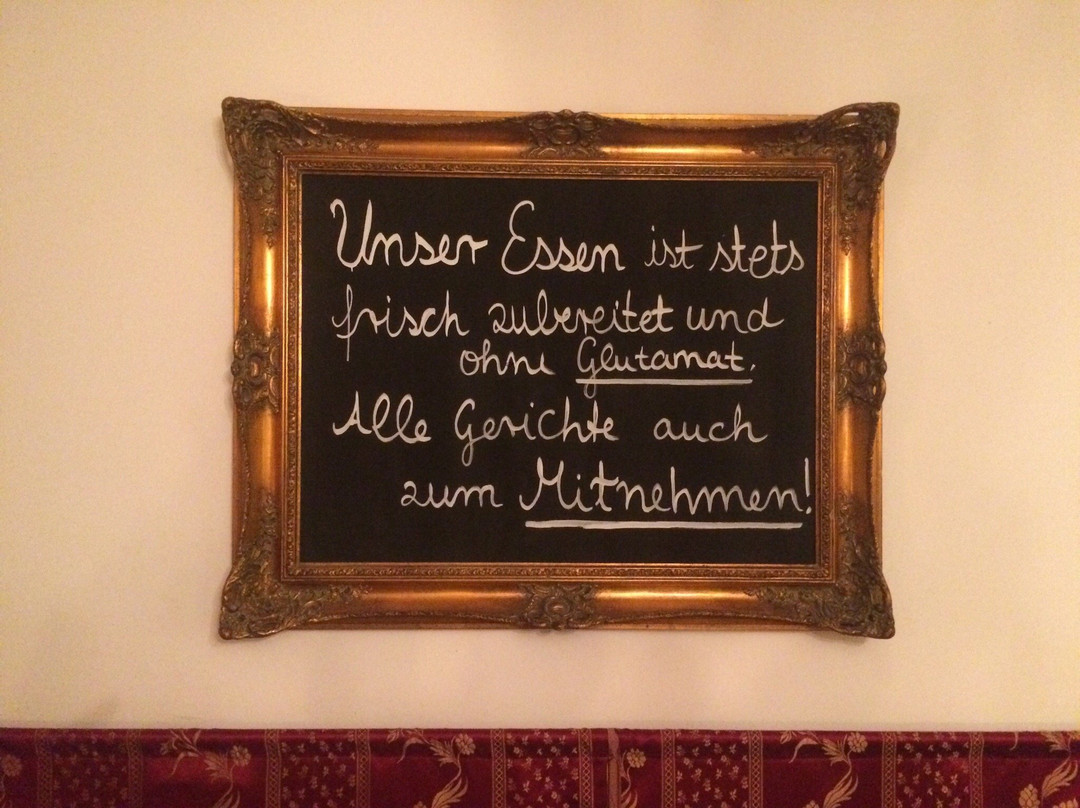 Unser Essen ist stets
frisch zubereitet und
ohne Glutamat.
Alle Gerichte auch
zum Mitnehmen!